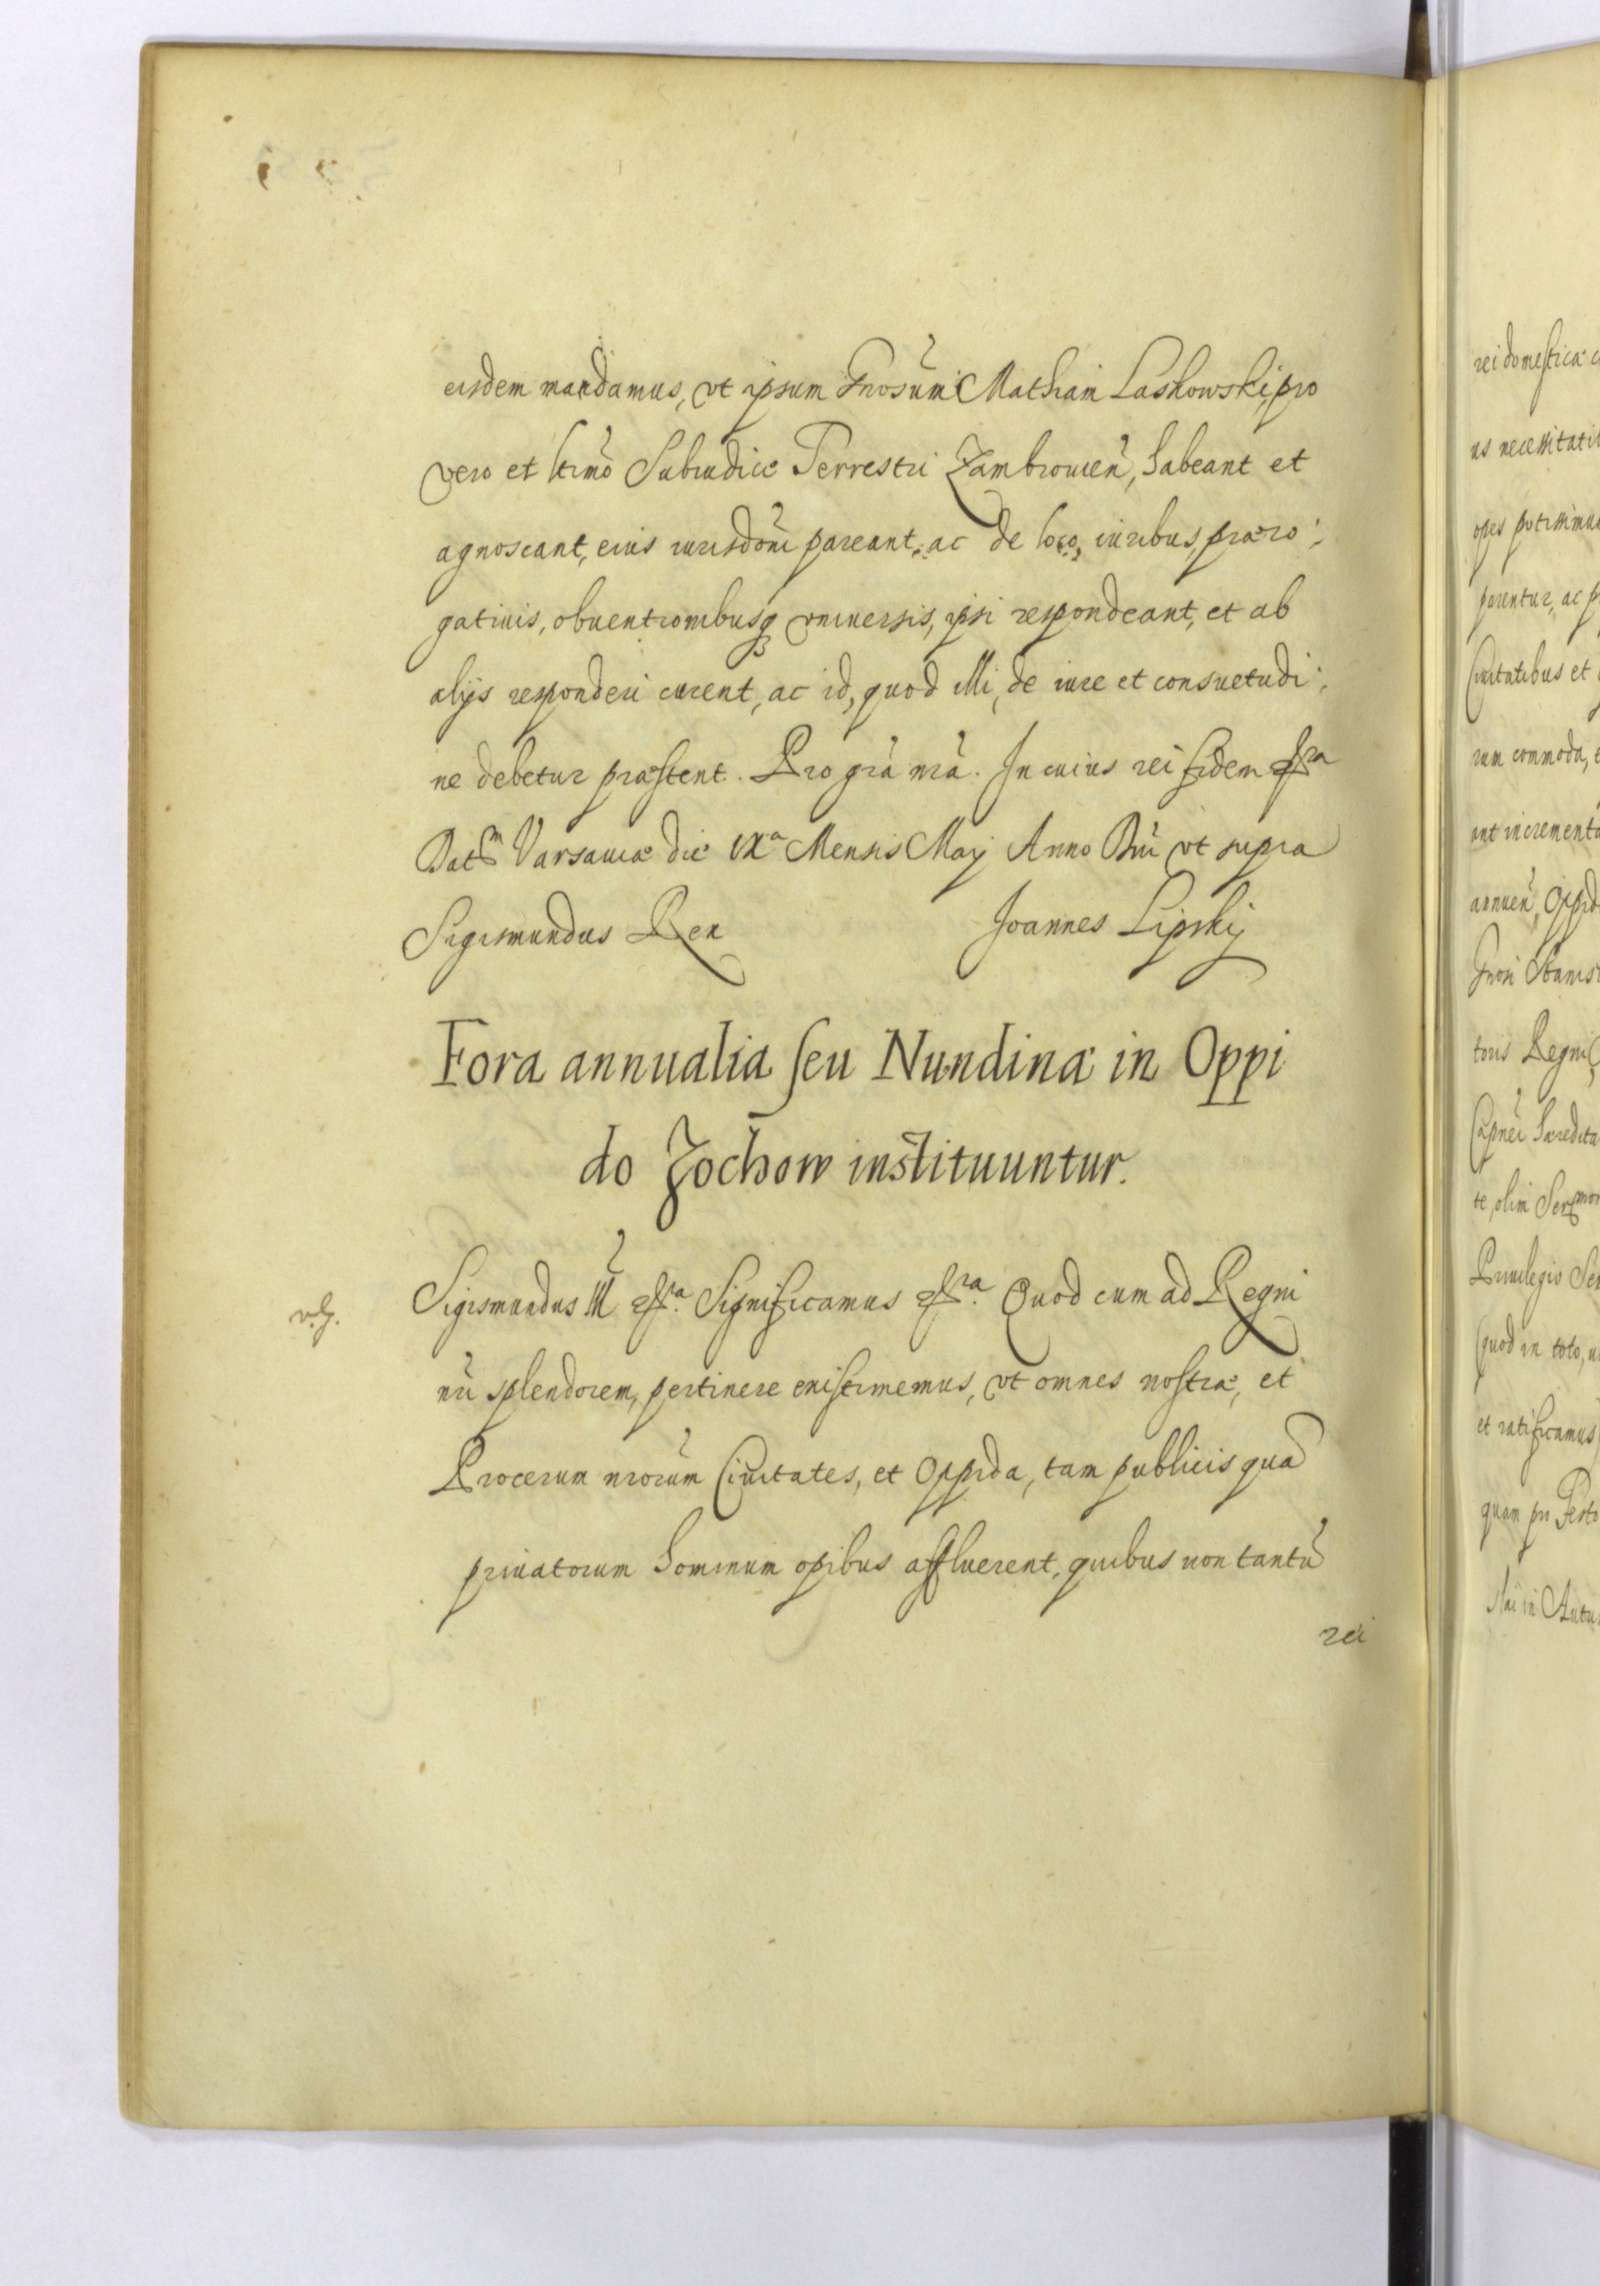 eisdem mandamus, vt ipsum Gnosum Mathiam Laskowski, pro
vero et ltimo Subiudice Terrestri Zambrouien, habeant et
agnoscant, eius iurisdoni pareant, ac de loco, iuribus, præro:
gatiuis, obuentionibusq vniuersis, ipsi respondeant, et ab
alijs responderi curent, ac id, quod illi, de iure et consuetudi:
ne debetur præstent. Pro gra nra. In cuius rei fidem etc.
Datm Varsauiæ die IXa Mensis Maij Anno Dni vt supra
Sigismundus Rex Joannes Lipskij
Fora annualia seu Nundinæ in Oppi
do Zochow instituuntur.
Sigismundus III etc. Significamus etc. Quod cum ad Regni
nri splendorem, pertinere existimemus, vt omnes nostræ, et
Procerum nrorum Ciuitates, et Oppida, tam publicis quā
priuatorum hominum opibus affluerent, quibus non tantū
rei
rei domesticæ
us necessitati
opes potissimu
parentur, ac p
Ciuitatibus et
rum commoda,
ant increment
annuen, Oppid
Gnosi Stanis
toris Regni
Capnei hæredita
te, olim Sermor
Priuilegio Se
quod in toto,
et ratificamus
quam pri Festo
in Autu